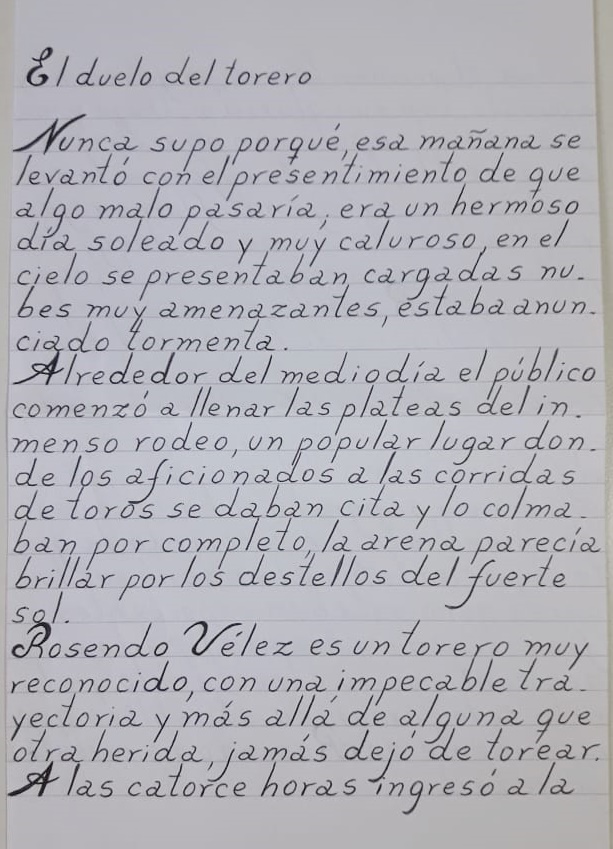 El duelo del torero
Nunca supo porqué, esa mañana se
levantó con el presentimiento de que
algo malo pasaría, era un hermoso
día soleado y muy caluroso, en el
cielo se presentaban cargadas nu-
bes muy amenazantes, estaba anun-
ciado tormenta.
Alrededor del mediodía el público
comenzó a llenar las plateas del in-
menso rodeo, un popular lugar don-
de los aficionados a las corridas
de toros se daban cita y lo colma-
ban por completo, la arena parecía
brillar por los destellos del fuerte
sol.
Rosendo Vélez es un torero muy
reconocido, con una impecable tra-
yectoria y más allá de alguna que
otra herida, jamás dejó de torear.
A las catorce horas ingresó a la